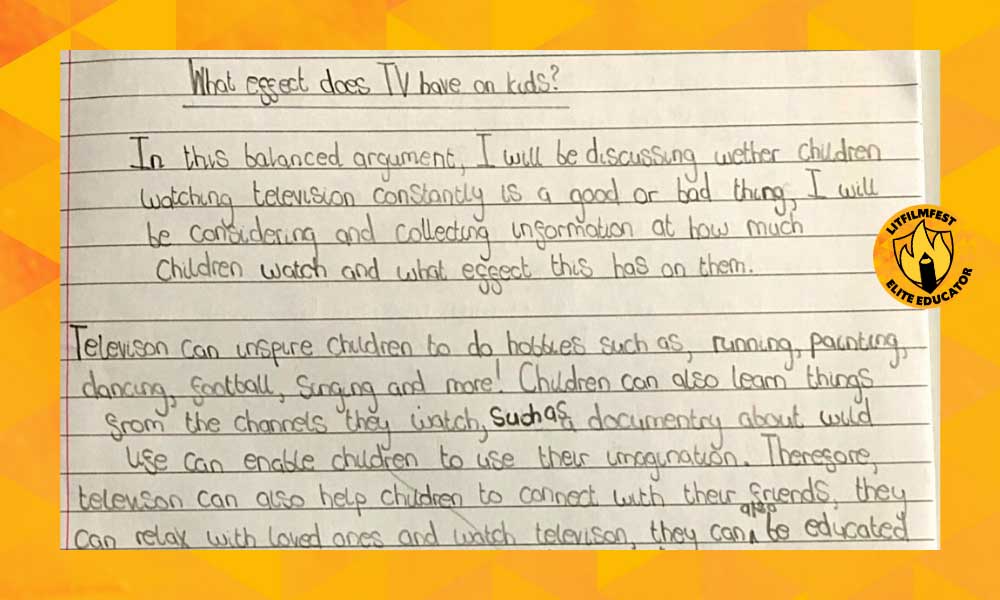 What effect does TV have on kids?
In this balanced argument, I will be discussing wether children
watching television constantly is a good or bad thing, I will
be considering and collecting information at how much
Children watch and what effect this has on them.
Televison can inspire children to do hobbies such as, running, painting,
dancing, football, singing and more! Children can also learn things
from the channels they watch, such as a documentry about wild
life can enable children to use their imagination. Therefore,
televison can also help children to connect with their friends, they
can relax with loved ones and watch televison, they can also be educated
LITFILMFEST
ELITE EDUCATOR